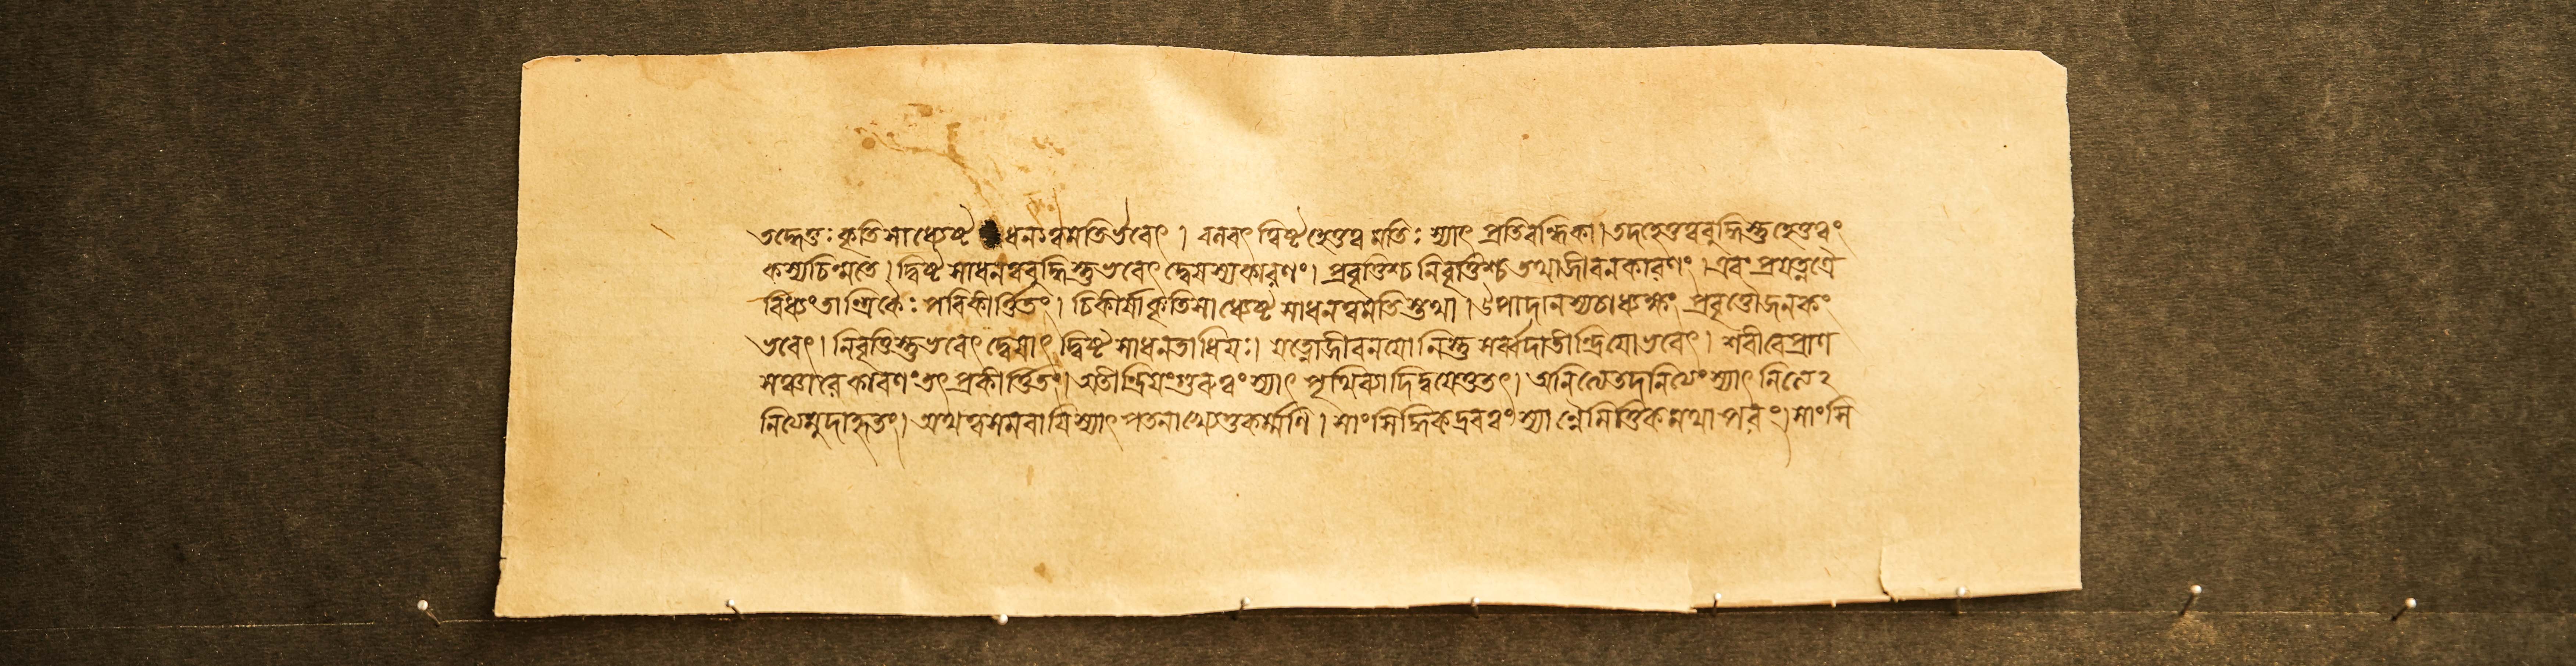 তদ্ধেতুঃ কৃতিসাধ্যেষ্ট ধনত্বমতির্ভবেৎ । বলবৎ দ্বিষ্টহেতুত্ব মতিঃ স্যাৎ প্রতিবন্ধিকা। তদহেতুত্ববুদ্ধিস্তু হেতুত্বং
কস্যচিন্মতে। দ্বিষ্ট সাধনত্ববুদ্ধিস্তু ভবেৎ দ্বেষস্য কারণং। প্রবৃত্তিশ্চ নিবৃত্তিশ্চ তথা জীবনকারণং। এবং প্রযত্নত্রৈ
বিধ্যং তান্ত্রিকৈঃ পরিকীর্ত্তিতং। চিকীর্ষা কৃতিসাধ্যেষ্ট সাধনত্বমতিস্তথা। উপাদানস্য চাধ্যক্ষং প্রবৃত্তৌ জনকং
ভবেৎ। নিবৃত্তিস্তু ভবেৎ দ্বেষাৎ দ্বিষ্ট সাধনতাধিয়ঃ। যত্নো জীবনযোনিস্তু সর্ব্বদাতীন্দ্রিয়ো ভবেৎ। শরীরে প্রাণ
সঞ্চারে কারণং তৎ প্রকীর্ত্তিতং। অতীন্দ্রিয়ং গুরুত্বং স্যাৎ পৃথিব্যাদিদ্বয়ে তু তৎ। অনিত্যে তদনিত্যং স্যাৎ নিত্যে২
নিত্যমুদাহৃতং। তদেবাসমবায়ি স্যাৎ পতনাখ্যে তু কর্ম্মণি। সাংসিদ্ধিকদ্রবত্বং স্যান্নৈমিত্তিকমথাপরং। সাংসি